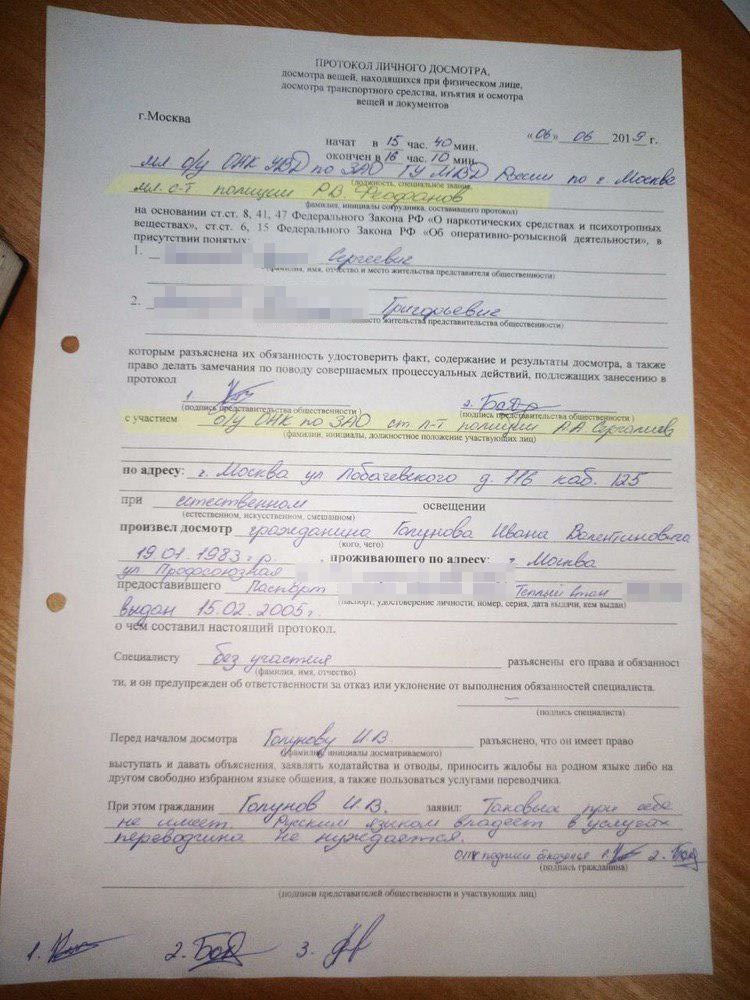 ПРОТОКОЛ ЛИЧНОГО ДОСМОТРА,
досмотра вещей, находящихся при физическом лице,
досмотра транспортного средства, изъятия и осмотра
вещей и документов
г.Москва
«06» 06 2019 г.
начат в 15 час. 40 мин.
окончен в 16 час. 10 мин.
мл о/у ОНК УВД по ЗАО ГУ МВД России по г Москва
(должность, специальное звание,
мл. с-т полиции Р.В. Феофанов
фамилия, инициалы сотрудника, составившего протокол)
на основании ст.ст. 8, 41, 47 Федерального Закона РФ «О наркотических средствах и психотропных
веществах», ст.ст. 6, 15 Федерального Закона РФ «Об оперативно-розыскной деятельности», в
присутствии понятых:
1. Сергеевич
(фамилия, имя, отчество и место жительства представителя общественности)
2. Григорьевич
место жительства представительства общественности)
которым разъяснена их обязанность удостоверить факт, содержание и результаты досмотра, а также
право делать замечания по поводу совершаемых процессуальных действий, подлежащих занесению в
протокол
1. 2.
(подпись представительства общественности) (подпись представительства общественности)
с участием о/у ОНК по ЗАО ст л-т полиции А.А. Сергалиев
(фамилии, инициалы, должностное положение участвующих лиц)
по адресу: г. Москва ул Лобачевского д. 116 каб. 125
при естественном освещении
(естественном, искусственном, смешанном)
произвел досмотр гражданина Голунова Ивана Валентиновича
(кого, чего)
19.01.1983 г.р. , проживающего по адресу: г Москва
ул Профсоюзная
предоставившего Паспорт Теплый Стан
(паспорт, удостоверение личности, номер, серия, дата выдачи, кем выдан)
выдан 15.02.2005г.
о чем составил настоящий протокол.
Специалисту без участия разъяснены его права и обязанност
(фамилия, имя, отчество)
ти, и он предупрежден об ответственности за отказ или уклонение от выполнения обязанностей специалиста.
(подпись специалиста)
Перед началом досмотра Голунову И.В. разъяснено, что он имеет право
(фамилия, инициалы досматриваемого)
выступать и давать объяснения, заявлять ходатайства и отводы, приносить жалобы на родном языке либо на
другом свободно избранном языке общения, а также пользоваться услугами переводчика.
При этом гражданин Голунов И.В. заявил: Таковых при себе
не имеет. Русским языком владеет в услугах
переводчика не нуждается.
от подписи отказался 1. 2.
(подпись гражданина)
(подписи представителей общественности и участвующих лиц)
1. 2. 3.